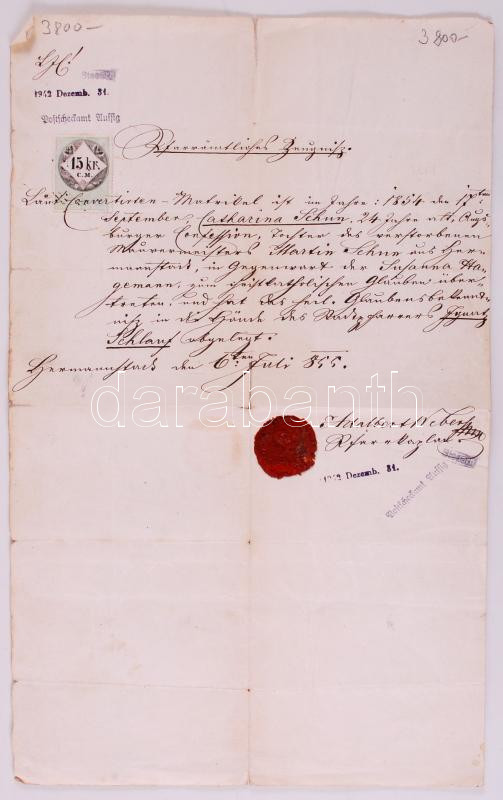 3800-
3800-
1942 Dezemb. 31.
Postscheckamt Aussig
Pfarrämtliches Zeugniß.
15 kr.
C.M.
Laut Convertirten-Matrikel ist im Jahre: 1854 den 17ten
September, Catharina Schun, 24 Jahre alt, Augs-
burger Confession, Tochter des verstorbenen
Mauermeisters Martin Schun aus Her-
mannstadt, in Gegenwart der Susanna Ha-
gemann, zum christkatholischen Glauben über-
treten, und hat das heil. Glaubensbekennt-
niß in die Hände des Stadtpfarrers Ignatz
Schlauf abgelegt.
Hermannstadt den 6ten Juli 855.
Adalbert Weber
Pfarrkaplan.
1942 Dezemb. 31.
Postscheckamt Aussig
darabanth